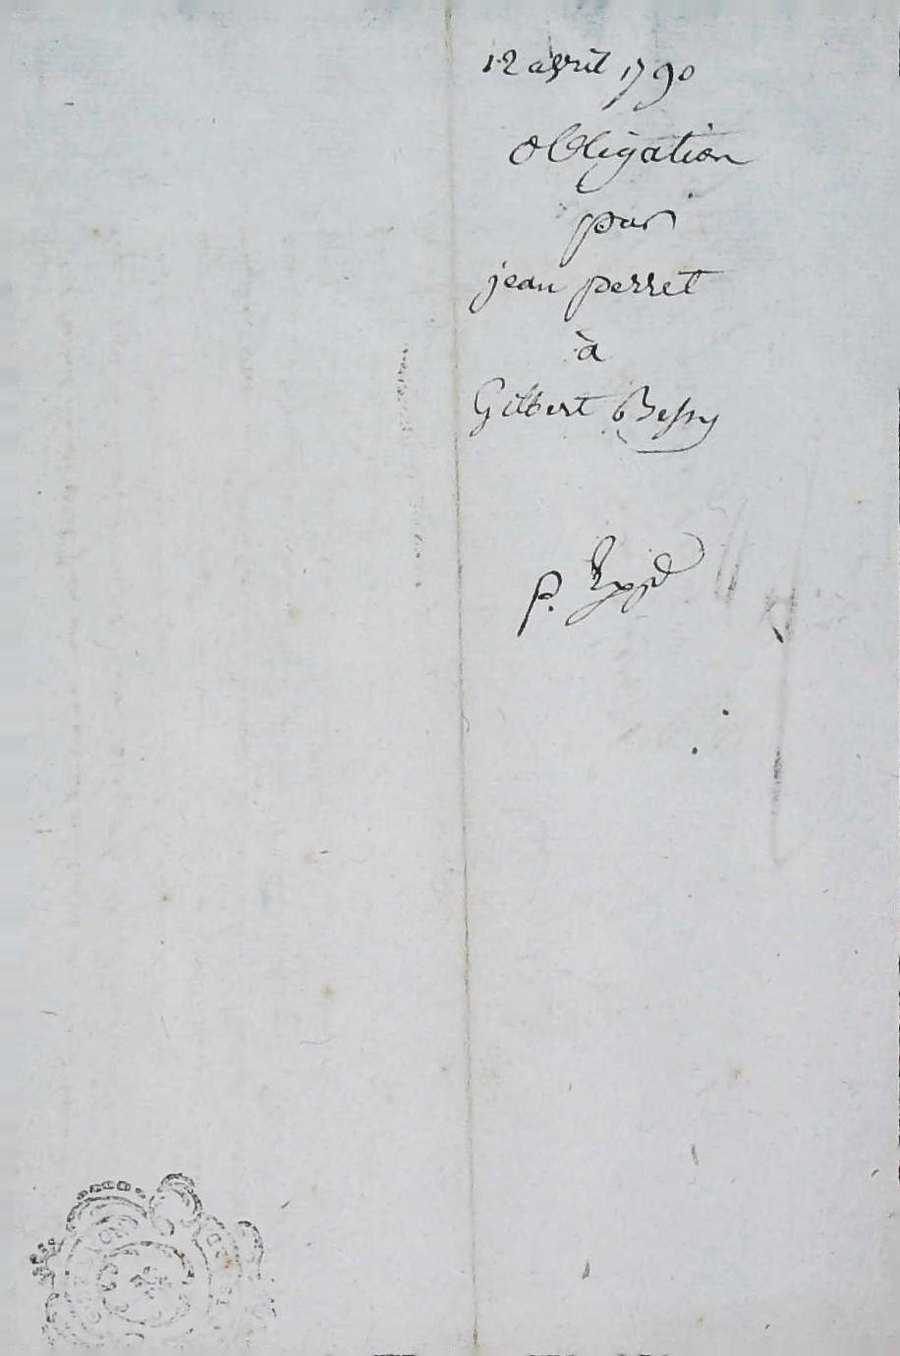 12 avril 1790
obligation
par
jean perret
à
Gilbert Bessy
p. Expd